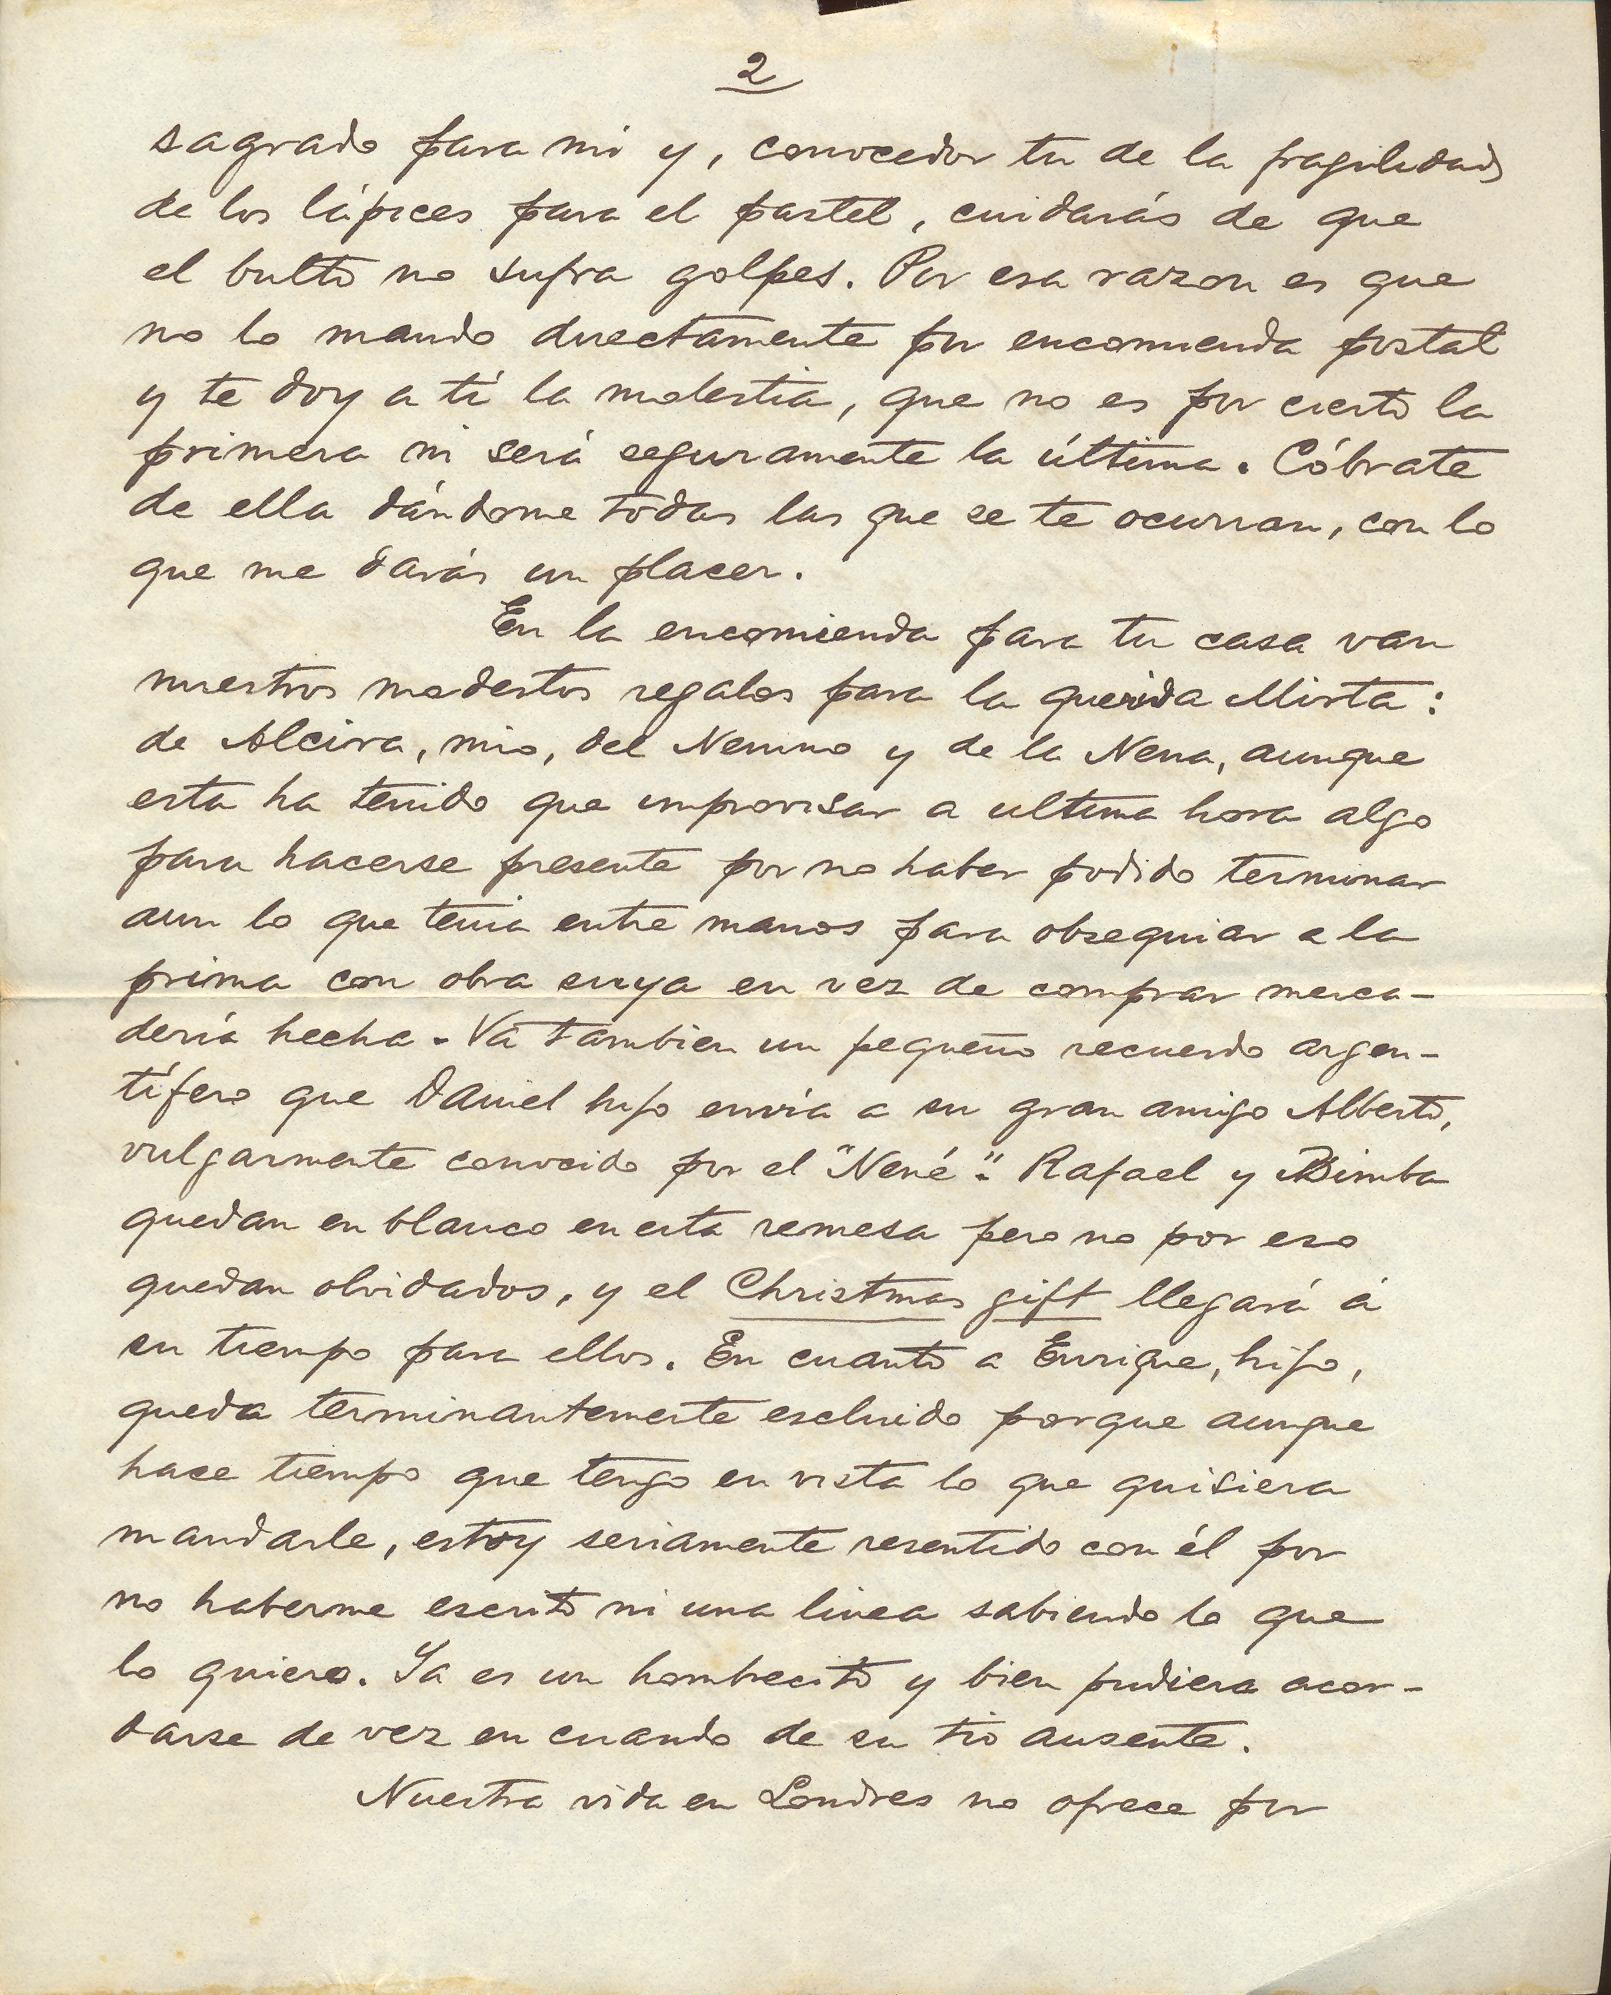 2
sagrado para mi y, conocedor tu de la fragilidad
de los lápices para el pastel, cuidarás de que
el bulto no sufra golpes. Por esa razon es que
no lo mando directamente por encomienda postal
y te doy a tí la molestia, que no es por cierto la
primera ni será seguramente la última. Cóbrate
de ella dándome todas las que se te ocurran, con lo
que me darás un placer.
En la encomienda para tu casa van
nuestros modestos regalos para la querida Mirta:
de Alcira, mio, del Nenino y de la Nena, aunque
esta ha tenido que improvisar a ultima hora algo
para hacerse presente por no haber podido terminar
aun lo que tenia entre manos para obsequiar a la
prima con obra suya en vez de comprar merca-
dería hecha. Va tambien un pequeño recuerdo argen-
tífero que Daniel hijo envía a su gran amigo Alberto,
vulgarmente conocido por el "Nené". Rafael y Bimba
quedan en blanco en esta remesa pero no por eso
quedan olvidados, y el Christmas gift llegará á
su tiempo para ellos. En cuanto a Enrique, hijo,
queda terminantemente escluido porque aunque
hace tiempo que tengo en vista lo que quisiera
mandarle, estoy seriamente resentido con él por
no haberme escrito ni una linea sabiendo lo que
lo quiero. Ya es un hombrecito y bien pudiera acor-
darse de vez en cuando de su tio ausente.
Nuestra vida en Londres no ofrece por